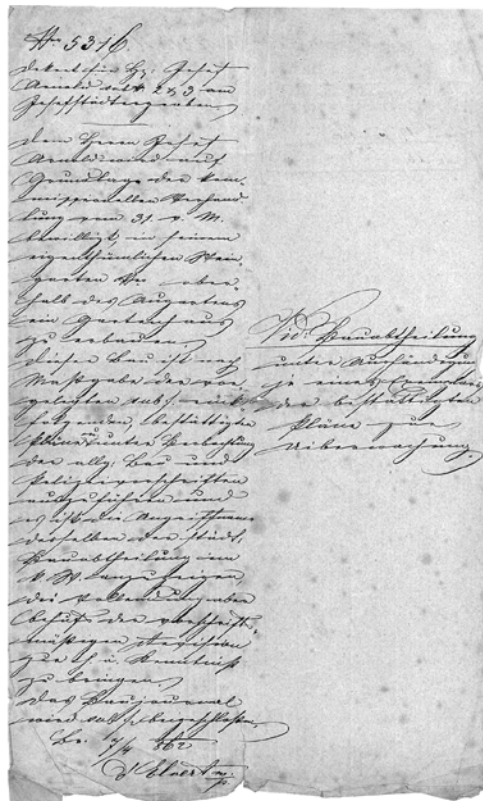 No 5316.
Dekret für Hr: Josef
Arnold sub No 2 & 3 am
Josefstädtergraben.
Dem Herrn Josef
Arnold wird auf
Grundlage der kom-
missionellen Verhand-
lung vom 31. v. M.
bewilligt, in seinem
eigenthümlichen Wein-
garten ober-
halb des Augartens
ein Gartenhaus
zu erbauen.
Dieser Bau ist nach
Maßgabe der vor-
gelegten sub rück-
folgenden, bestättigten
Pläne unter Beobachtung
der allg: Bau und
Polizeivorschriften
auszuführen und
es ist die Angriffname
derselben der städt.
Bauabtheilung
anzuzeigen,
die Vollendung aber
behufs der vorschrift-
mäßigen Revision
zur h. ä. Kenntniß
zu bringen.
Das Baujournal
wird sub beigeschlossen.
Br. 7/4 862
d'Elvert mp.
Vid: Bauabtheilung
unter Aushändigung
je eines Exemplars
der bestättigten
Pläne zur
Uiberwachung.